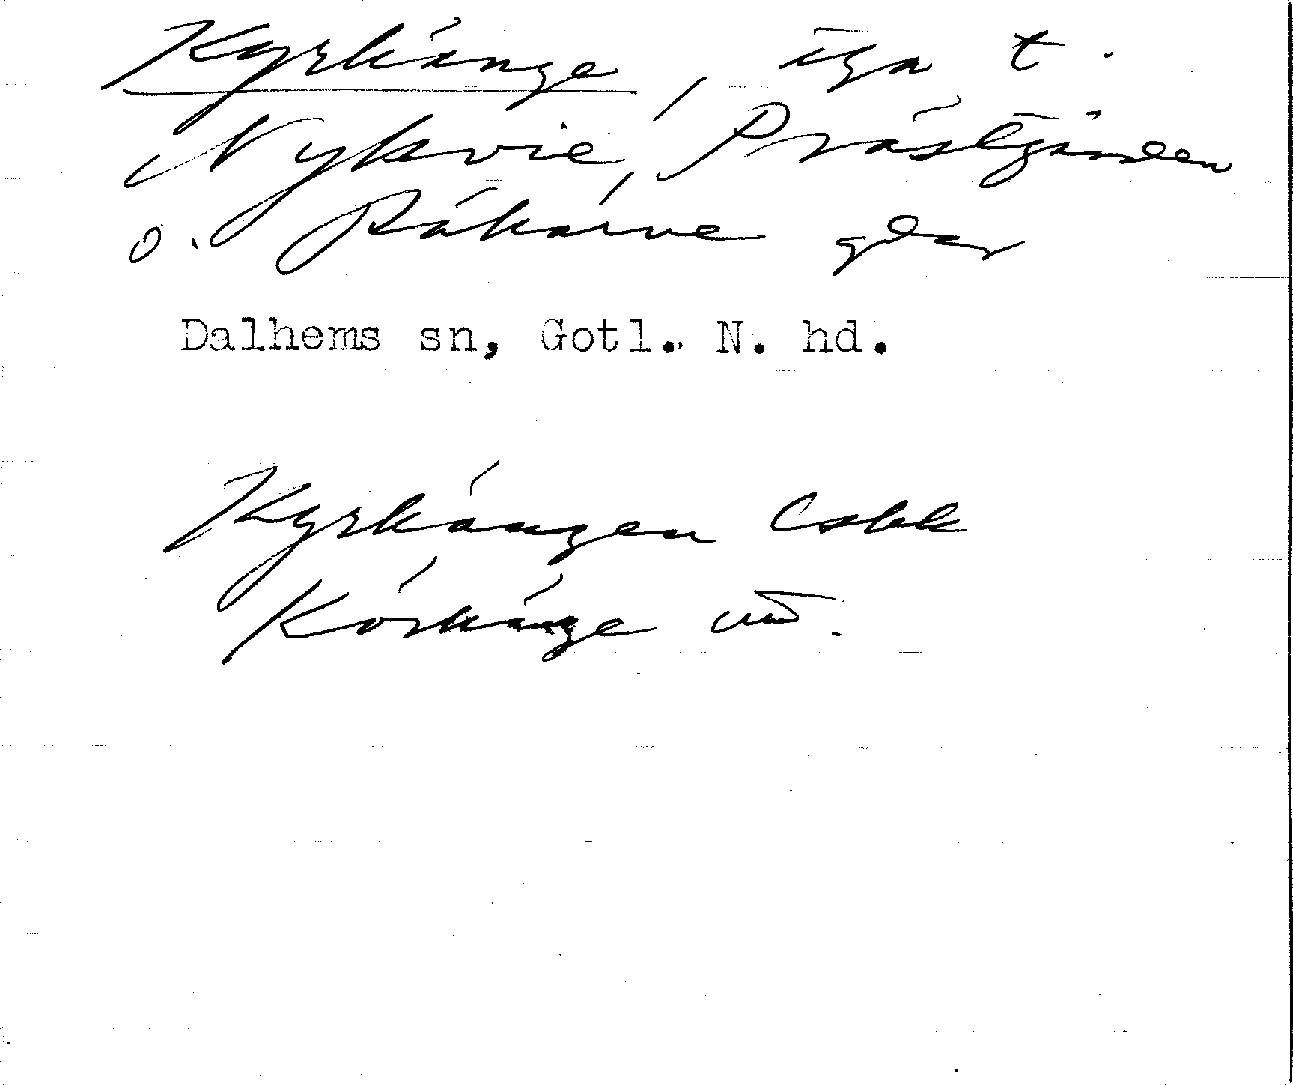 Kyrkänge, äga t.
Nykvie, Prästgården
o. Råkårve gdar
Dalhems sn, Gotl. N. hd.
Kyrkängen
Körkänge